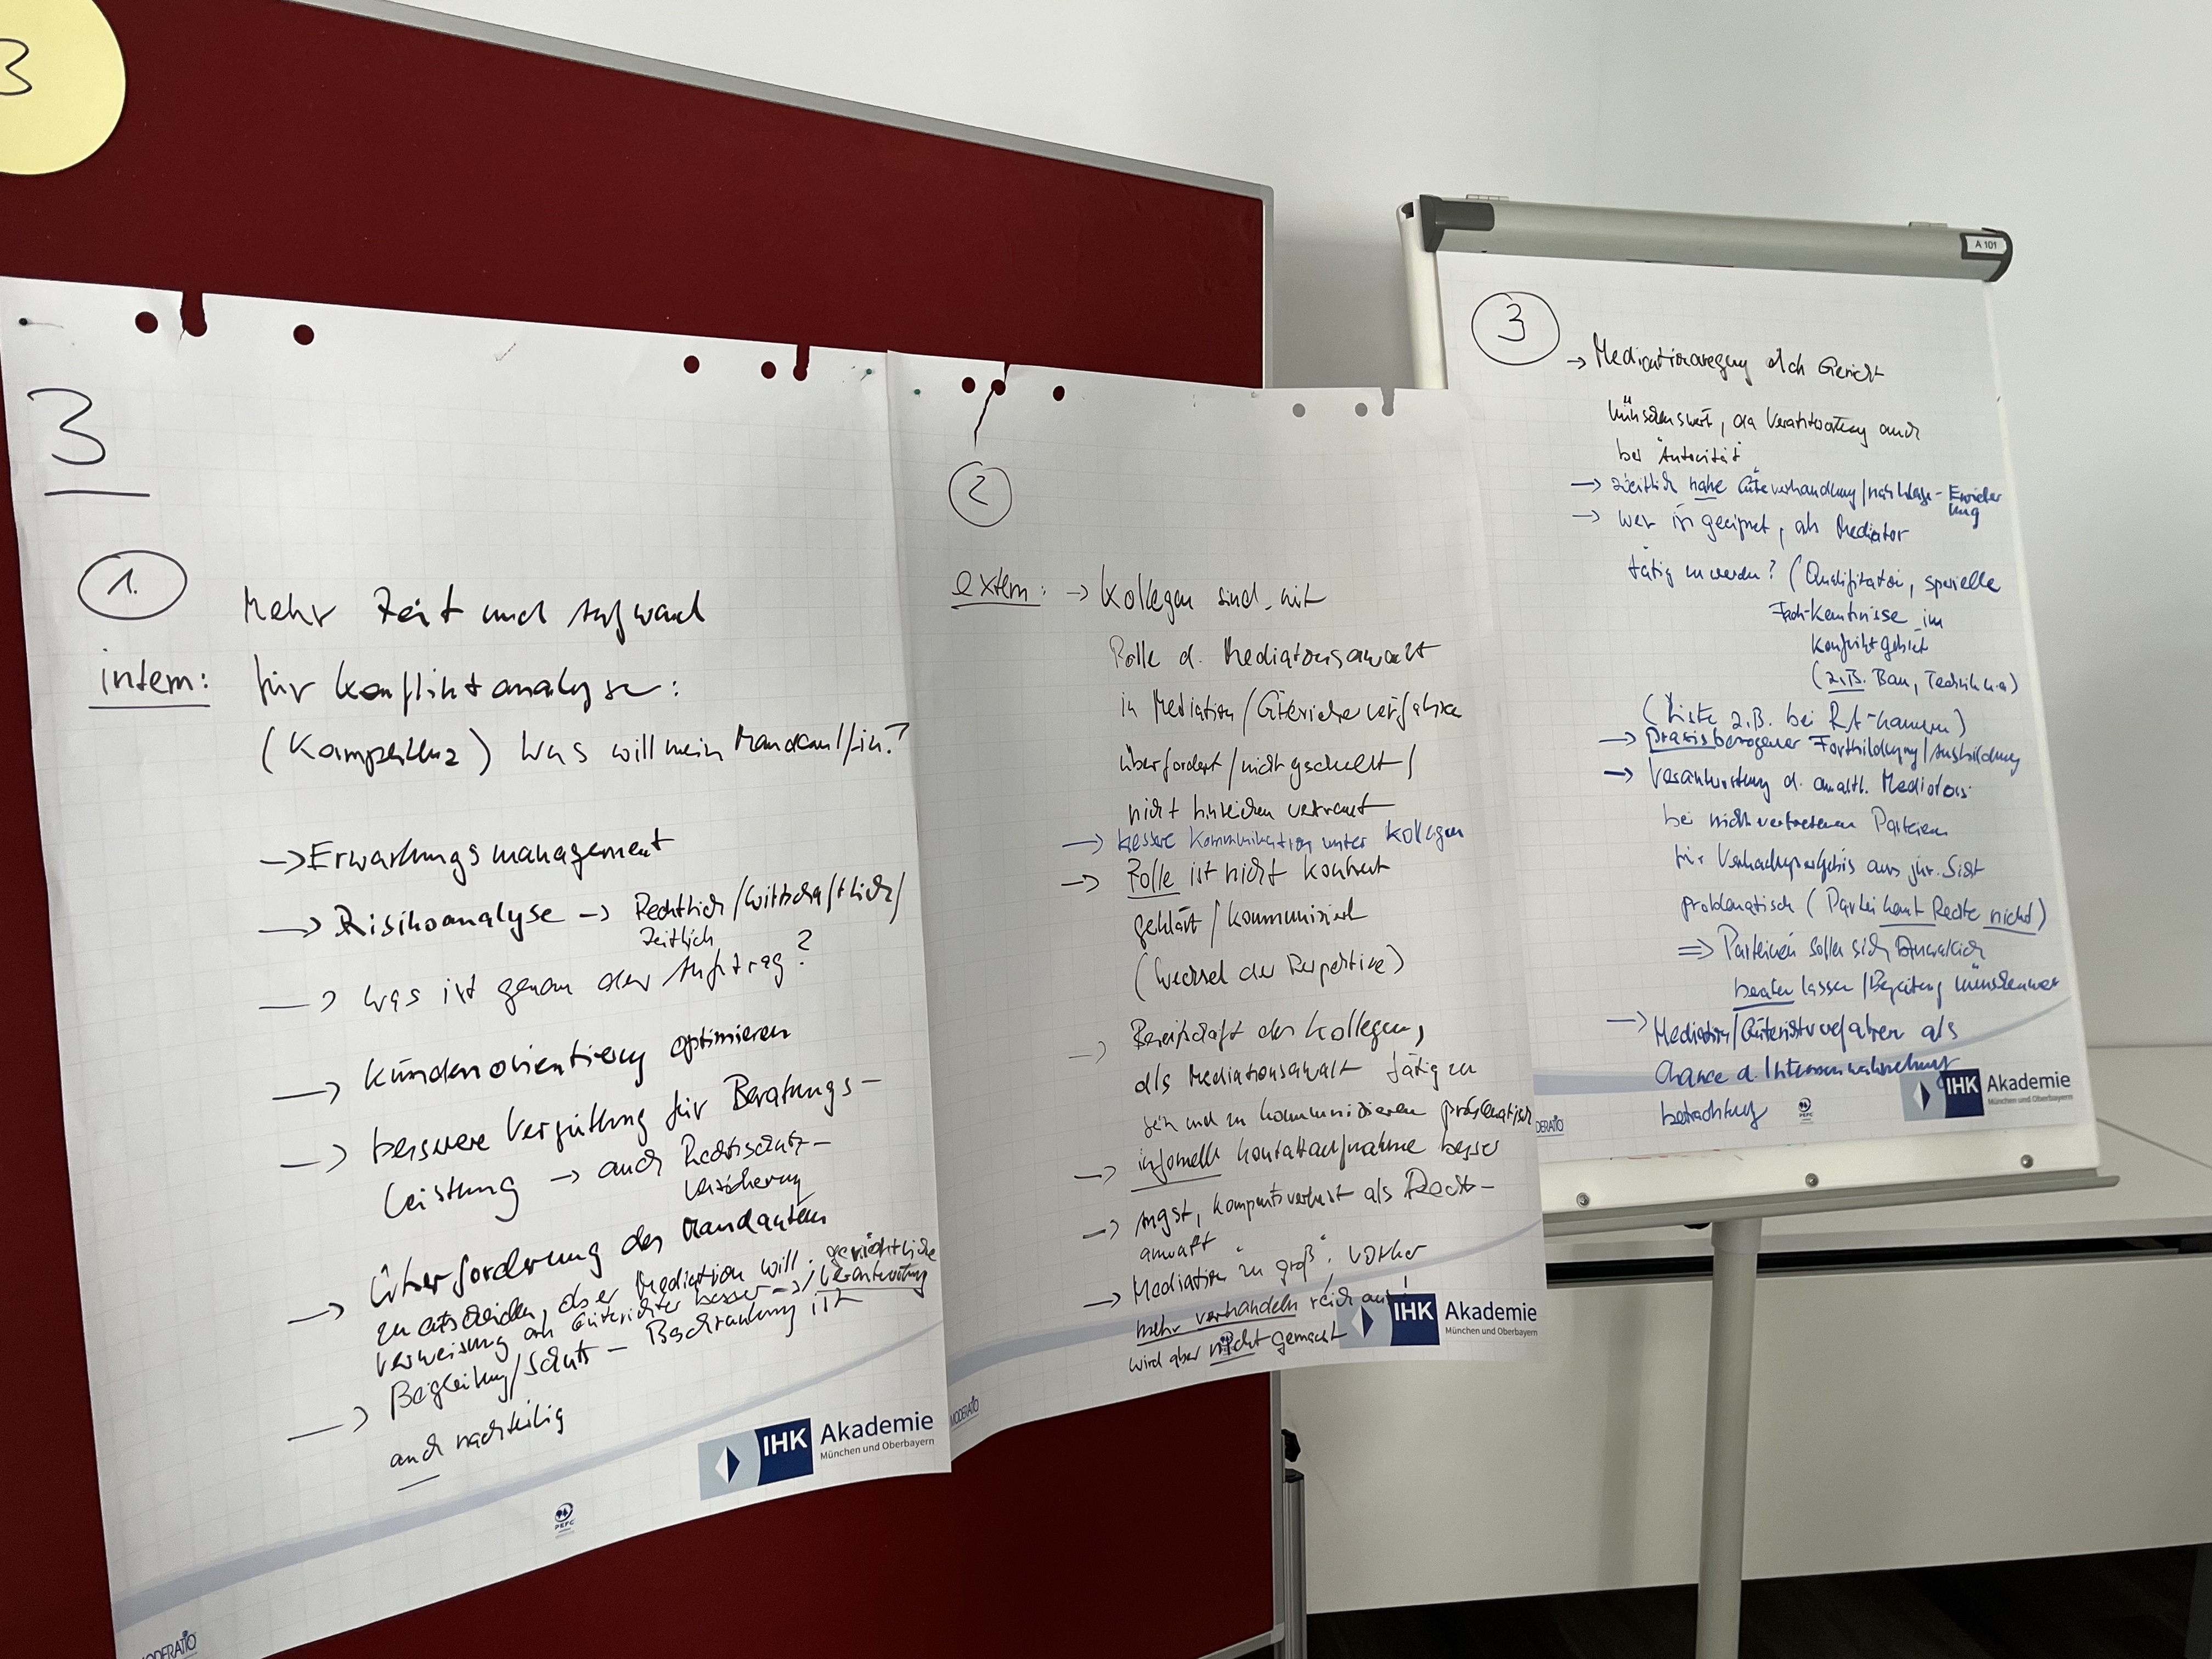 3
3
1.
Mehr Zeit und Aufwand
intern: für Konfliktanalyse:
(Kompetenz) Was will mein Mandant/in?
→ Erwartungsmanagement
→ Risikoanalyse → Rechtlich/Wirtschaftlich/
Zeitlich
→ Was ist genau der Auftrag?
→ Kundenorientierung optimieren
→ bessere Vergütung für Beratungs-
leistung → auch Rechtsschutz-
versicherung
→ Überforderung des Mandanten
zu entscheiden, ob er Mediation will.
Verweisung an Güterichter besser → gerichtliche
Verantwortung
→ Begleitung/Schutz – Beschränkung ist
auch nachteilig
IHK Akademie
München und Oberbayern
PEFC
MODERATIO
2
extern: → Kollegen sind mit
Rolle d. Mediationsanwalt
in Mediation/Güterichterverfahren
überfordert/nicht geschult/
nicht hinreichen vertraut
→ bessere Kommunikation unter Kollegen
→ Rolle ist nicht konkret
geklärt/kommuniziert
(Wechsel der Perspektive)
→ Bereitschaft der Kollegen,
als Mediationsanwalt tätig zu
sein und zu kommunizieren problematisch
→ informelle Kontaktaufnahme besser
→ Angst, Kompetenzverlust als Recht-
anwalt
→ Mediation "zu groß". Vorher
mehr verhandeln reicht aus!
wird aber nicht gemacht
IHK Akademie
München und Oberbayern
MODERATIO
A 101
3
→ Mediationsanregung durch Gericht
wünschenswert, da Verantwortung auch
bei "Autorität"
→ zeitlich nahe Güteverhandlung/nach Klage-Erwider
ung
→ wer ist geeignet, als Mediator
tätig zu werden? (Qualifikation, spezielle
Fach-Kenntnisse im
Konfliktgebiet
(z.B. Bau, Technik u.a)
(Liste z.B. bei RA-Kammern)
→ praxisbezogener Fortbildung/Ausbildung
→ Verantwortung d. anwaltl. Mediators
bei nicht vertretenen Parteien
für Verhandlungsergebnis aus jur. Sicht
problematisch (Partei kennt Rechte nicht)
⇒ Parteien sollen sich anwaltlich
beraten lassen/Begleitung wünschenswert
→ Mediation/Güterichterverfahren als
Chance d. Interessenwahrnehmung
betrachtung
IHK Akademie
München und Oberbayern
PEFC
DERATIO